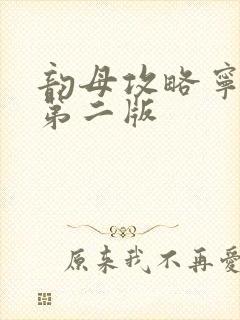 韵母攻略寧
第二版
原来我不再愛